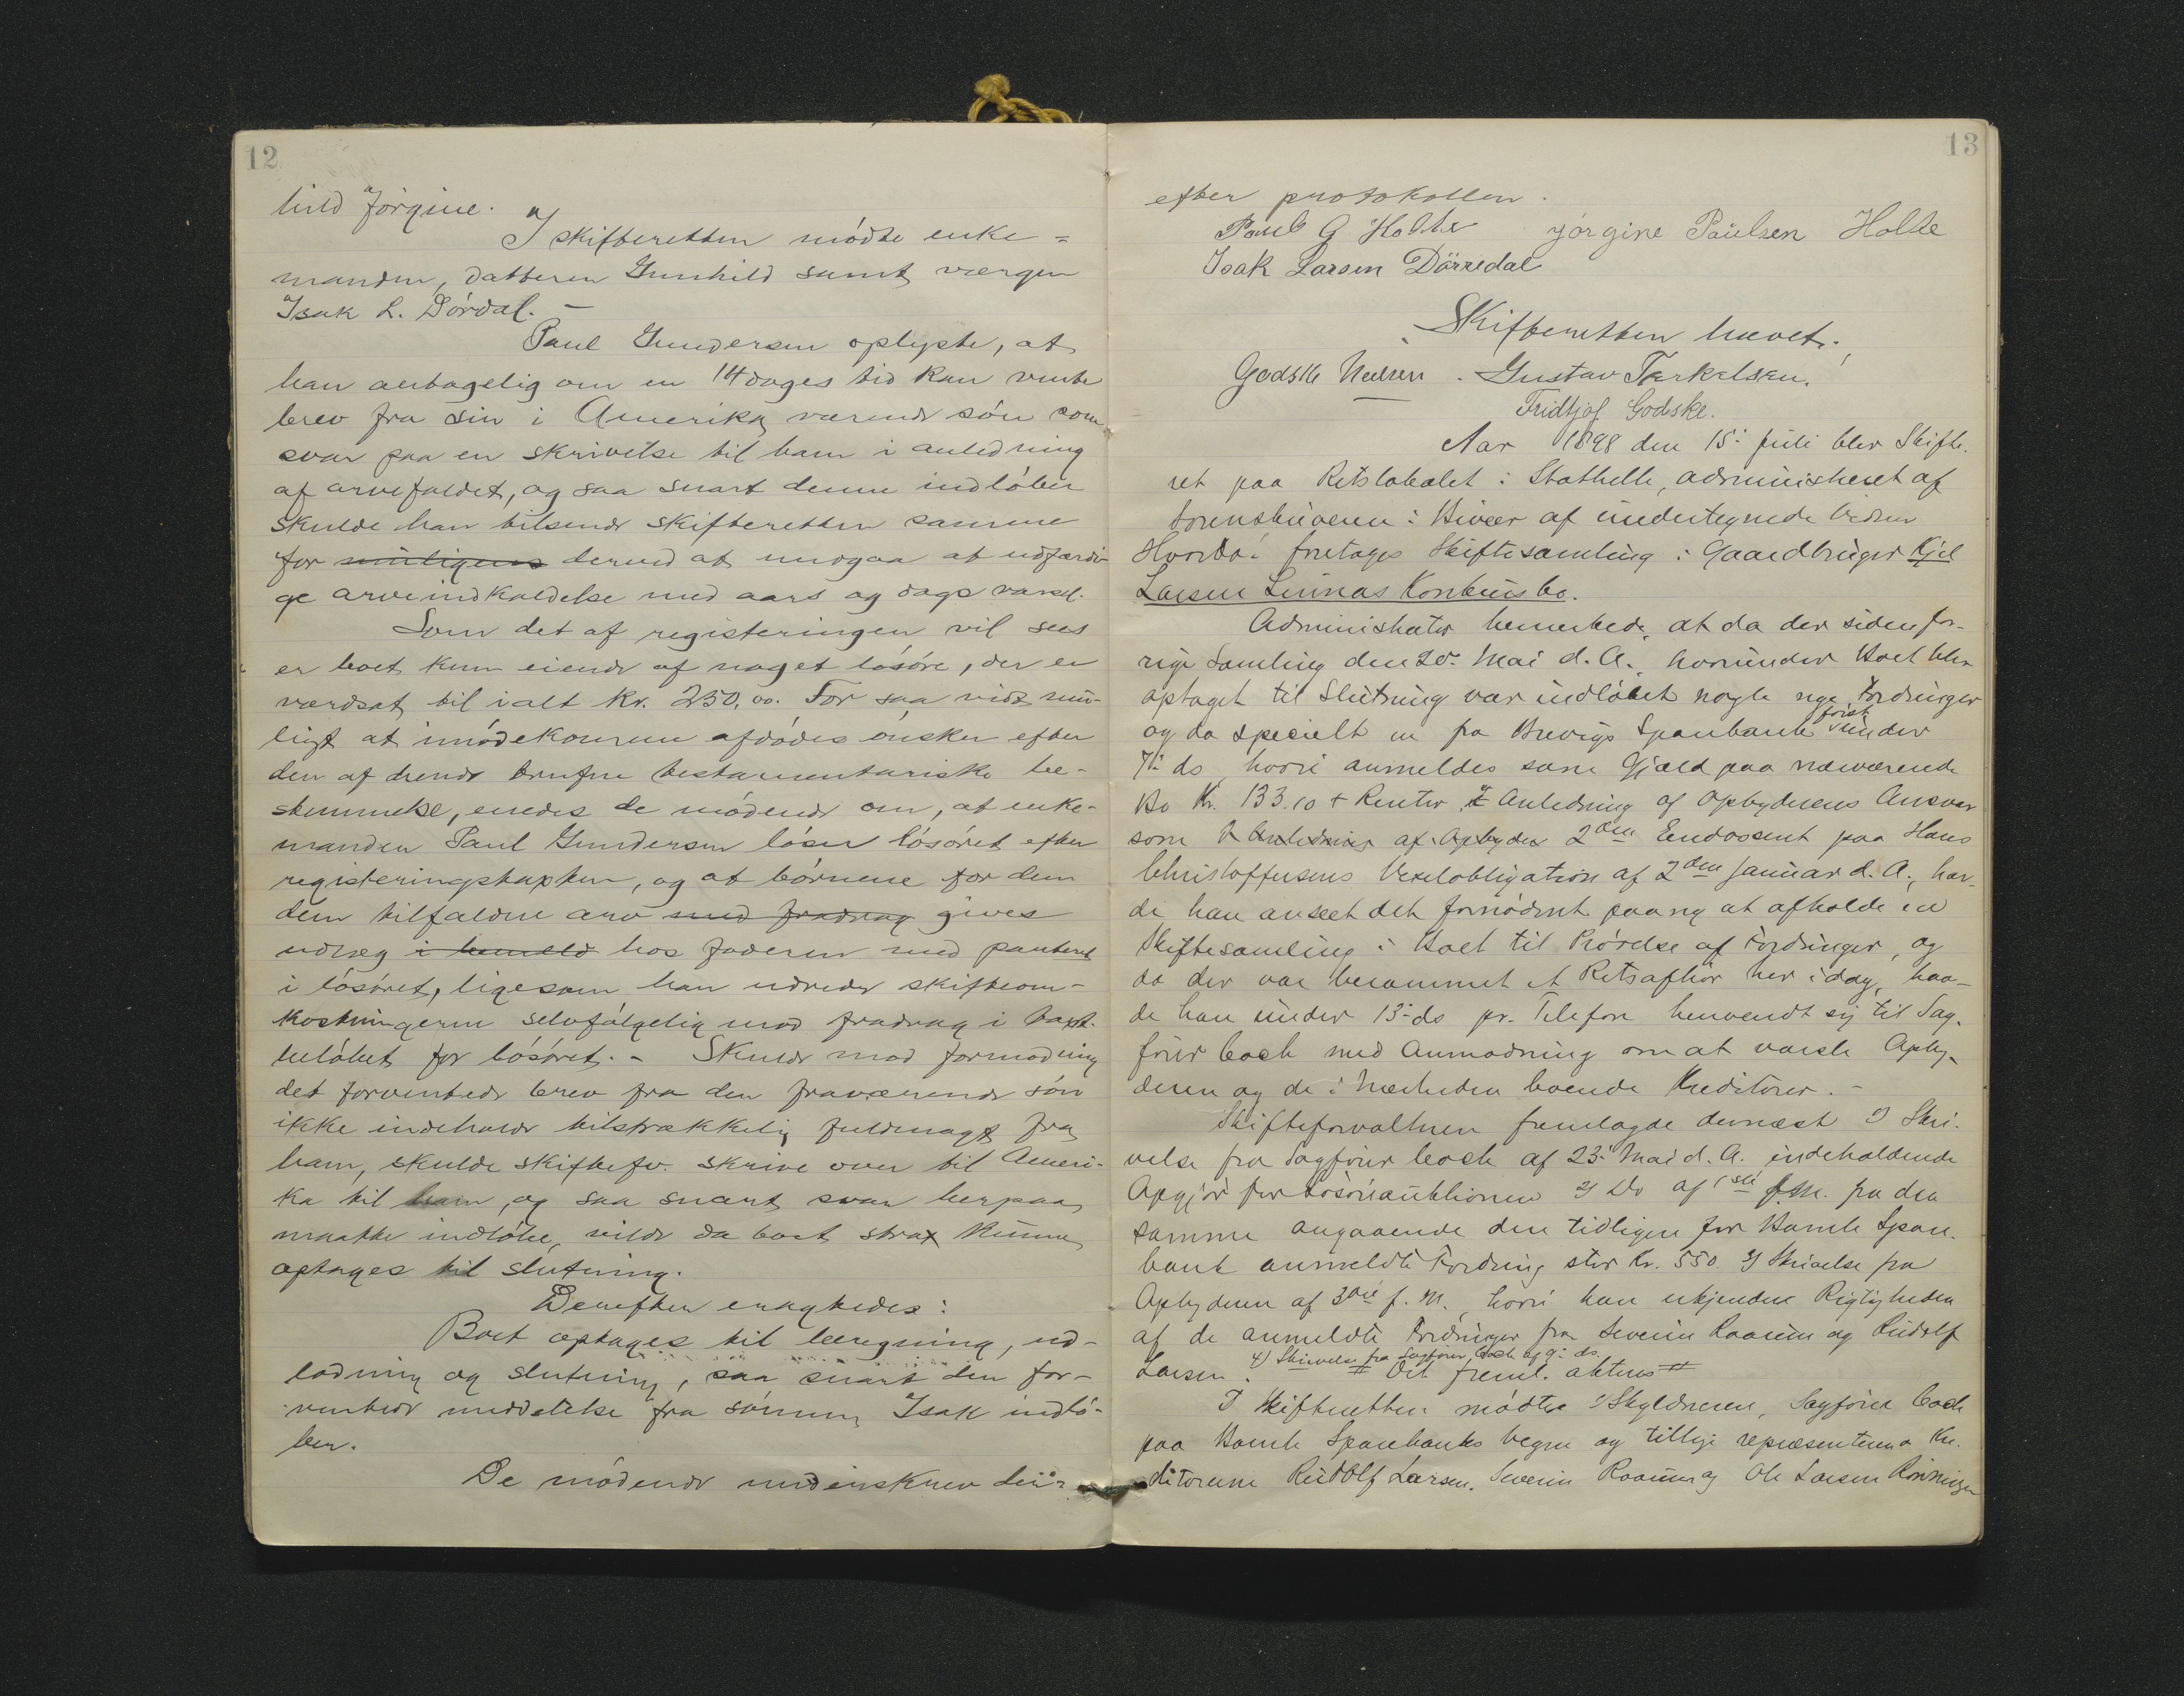 12
hild Jörgine.
I skifteretten mödte enke=
manden, datteren Gunhild samt værgen
Isak L. Dördal. –
Paul Gundersen oplyste, at
han antagelig om en 14 dages tid kan vente
brev fra sin i Amerika værende sön som
svar paa en skrivelse til ham i anledning
af arvefaldet, og saa snart denne indlöber
skulde han tilsende skifteretten samme
for muligens derved at undgaa at udfærdi-
ge arveindkaldelse med aars og dags varsel.
Som det af registeringen vil sees
er boet kun eiende af noget lösöre, der er
værdsat til ialt Kr. 250,00. For saa vidt mu-
ligt at imödekomme afdödes önsker efter
den af hende trufne testamentariske be-
stemmelse, enedes de mödende om, at enke-
manden Paul Gundersen löser lösöret efter
registeringstaxten, og at börnene for den
dem tilfaldne arv med fradrag gives
udlæg i hos faderen med panteret
i lösöret, ligesom han udreder skifteom-
kostningerne selvfölgelig mod fradrag i taxt-
belöbet for lösöret. – Skulde mod formodning
det forventede brev fra den fraværende sön
ikke indeholde tilstrækkelig fuldmagt fra
ham, skulde skiftefv. skrive over til Ameri-
ka til ham, og saa snart svar herpaa
maatte indlöbe, vilde da boet strax kunne
optages til slutning.
Derefter eragtedes:
Boet optages til beregning, ud-
lodning og slutning, saa snart den for-
ventede meddelelse fra sönnen Isak indlö-
ber.
De mödende underskrev her
13
efter protokollen.
Paul G Holte Jörgine Paulsen Holte
Isak Larsen Dörredal
Skifteretten hævet.
Godsk Nielsen. Gustav Terkelsen.
Fridtjof Godske.
Aar 1898 den 15: Juli blev Skifte-
ret paa Retslokalet i Stathelle, administreret af
Sorenskriveren i Bivær af undertegnede Vidner
Hvorda: foretages Skiftesamling i Gaardbruger Kjel
Larsen Linnas Konkursbo.
Administrator bemerkede, at da der siden for-
rige Samling den 20: Mai d. A., hvorunder Boet blev
optaget til Slutning var indløbet nogle nye Fordringer
og da specielt en fra Brevigs Sparebank först under
7: ds, hvori anmeldes som Gjæld paa nærværende
Bo Kr. 133.10 + Renter i Anledning af Opbyderens Ansvar
som i Anledning af Opbyder 2den Endossent paa Hans
Christoffersens Vexelobligation af 2den Januar d. A., hav-
de han anseet det fornødent paany at afholde en
Skiftesamling i Boet til Prøvelse af Fordringer, og
da der var berammet et Retsafhör her idag, hav-
de han under 13: ds pr. Telefon henvendt sig til Sag-
förer Coch med Anmodning om at varsle Opby-
deren og de i Nærheden boende Kreditorer. –
Skifteforvalteren fremlagde dernæst 1) Skri-
velse fra Sagförer Coch af 23: Mai d. A. indeholdende
Opgjør for Løsøreauktionen 2) Do af 1ste f. M. fra den
samme angaaende den tidligere for Bamle Spare-
bank anmeldte Fordring stor Kr. 550. 3) Skrivelse fra
Opbyderen af 3die f. M., hvori han erkjender Rigtigheden
af de anmeldte Fordringer fra Severin Raanum og Rudolf
Larsen. 4) Skrivelse fra Sagförer Coch af 9: ds.
Det freml. akteres
I Skifteretten mødte 1) Skyldneren, Sagförer Coch
paa Bamle Sparebanks Vegne og tillige repræsenterende Kre-
ditorerne Rudolf Larsen, Severin Raanum og Ole Larsen Rønningen